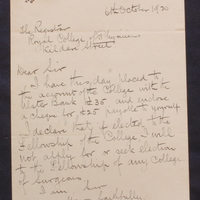 6th October 1920
The Registrar
Royal College of Physicians
Kildare Street
Dear Sir
I have this day placed to
the account of the College with the
Ulster Bank £35 and enclose
a cheque for £25 payable to yourself
I declare that if elected to the
Fellowship of the College I will
not apply for or seek election
to the Fellowship of any College
of Surgeons.
I am Sir
Yours faithfully